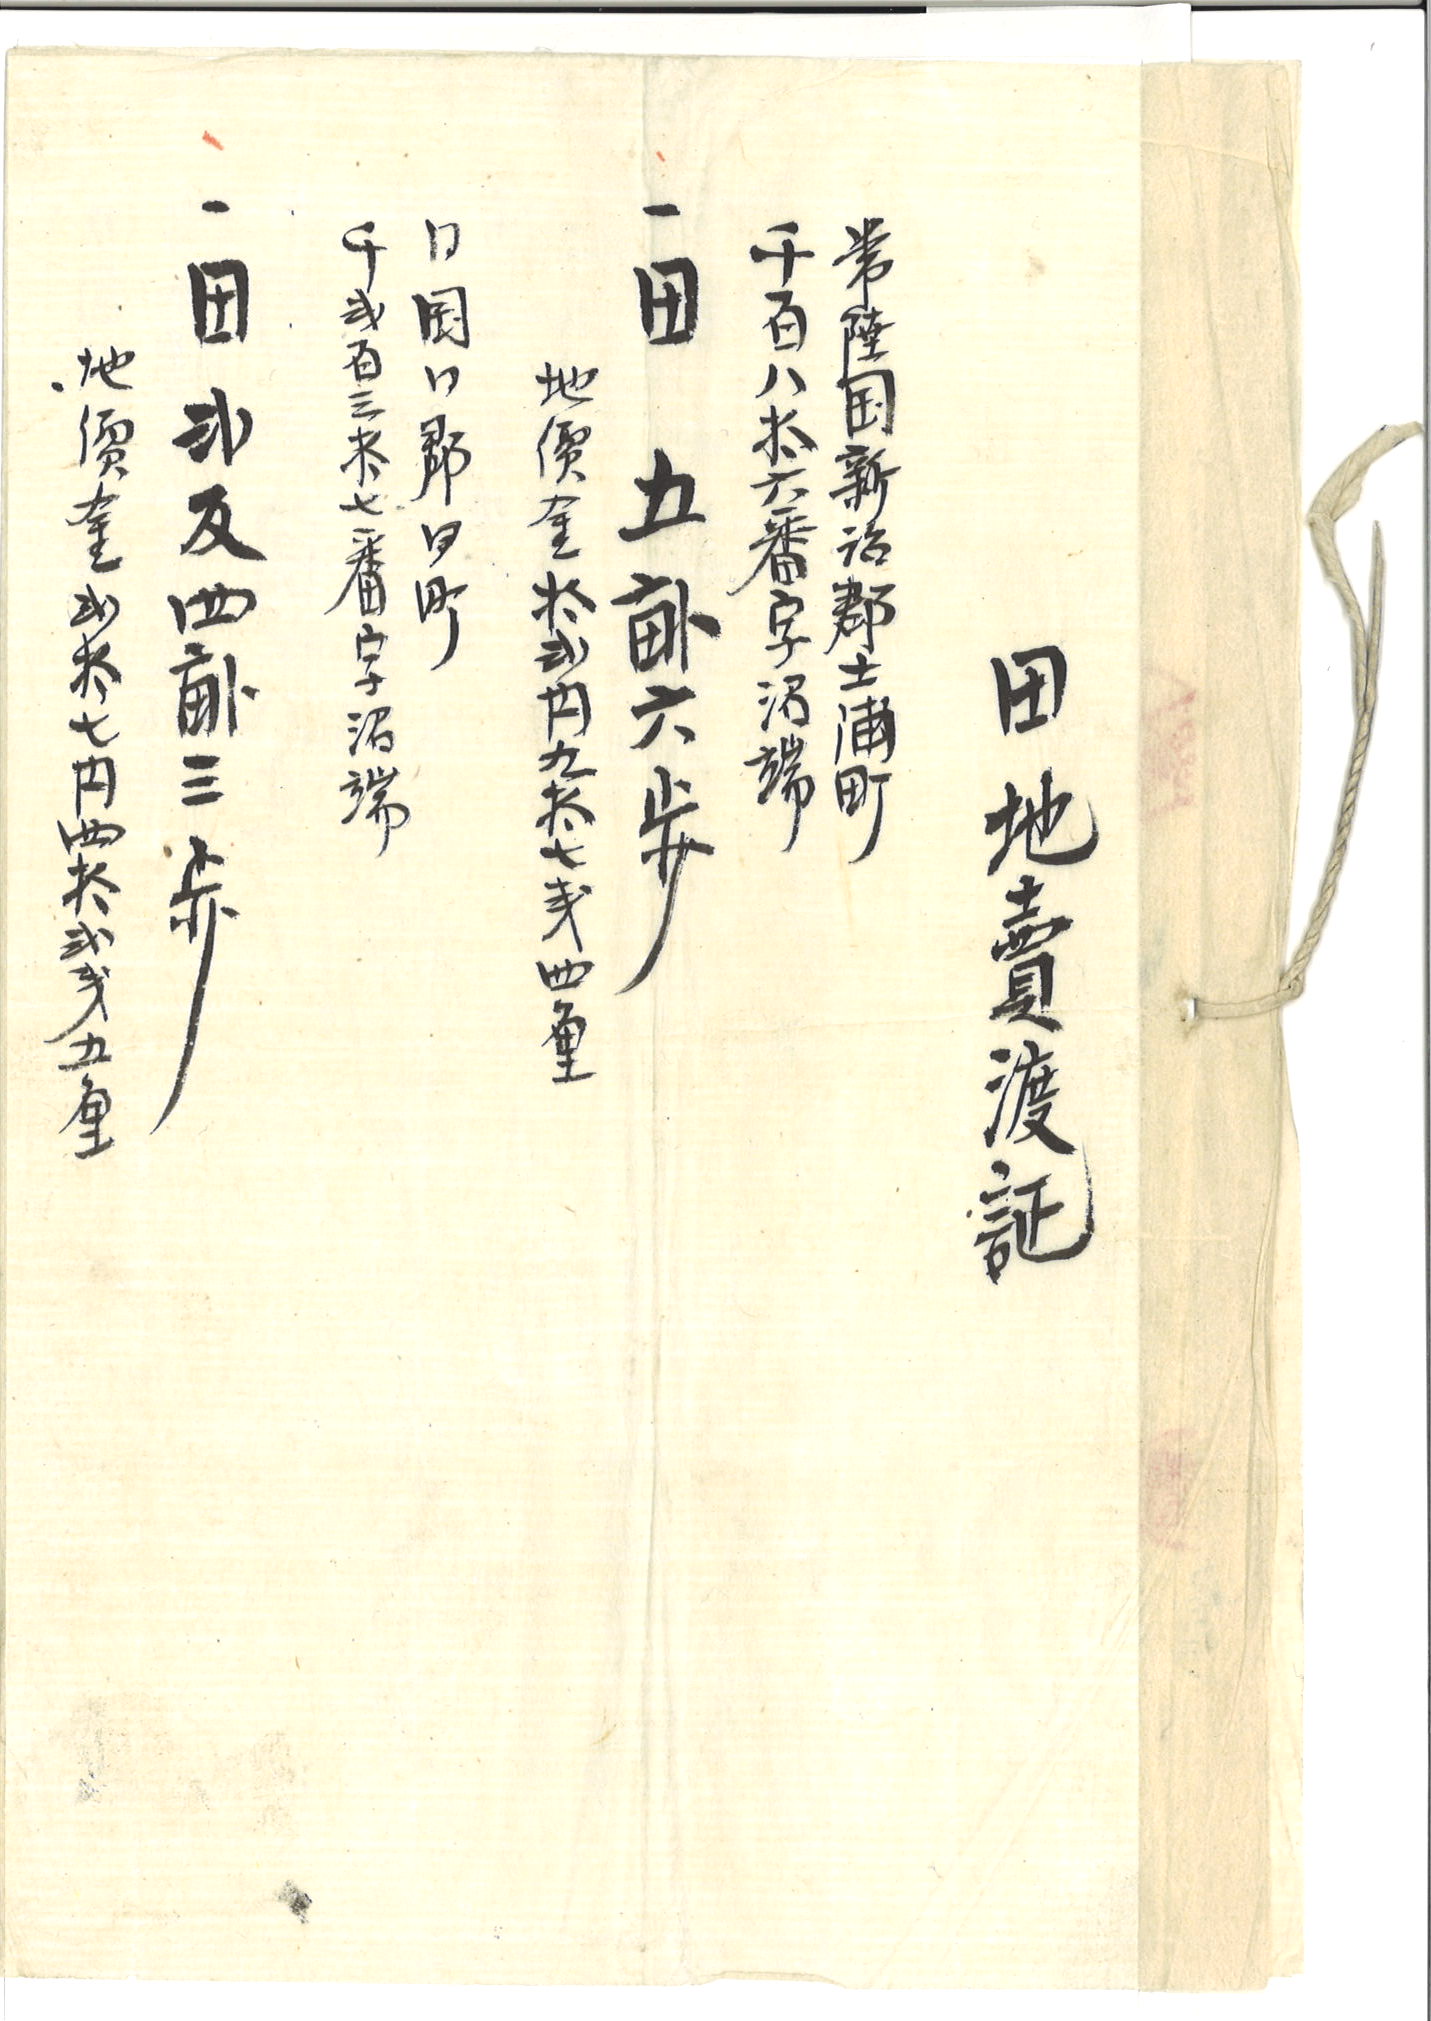 田地賣渡証
常陸国新治郡土浦町
千百八拾六番字沼端
一田 五畝六歩
地價金拾弐円九拾七戋四厘
仝国仝郡仝町
千弐百三拾七番字沼端
一田弐反四畝三歩
地價金弐拾七円四拾弐戋五厘